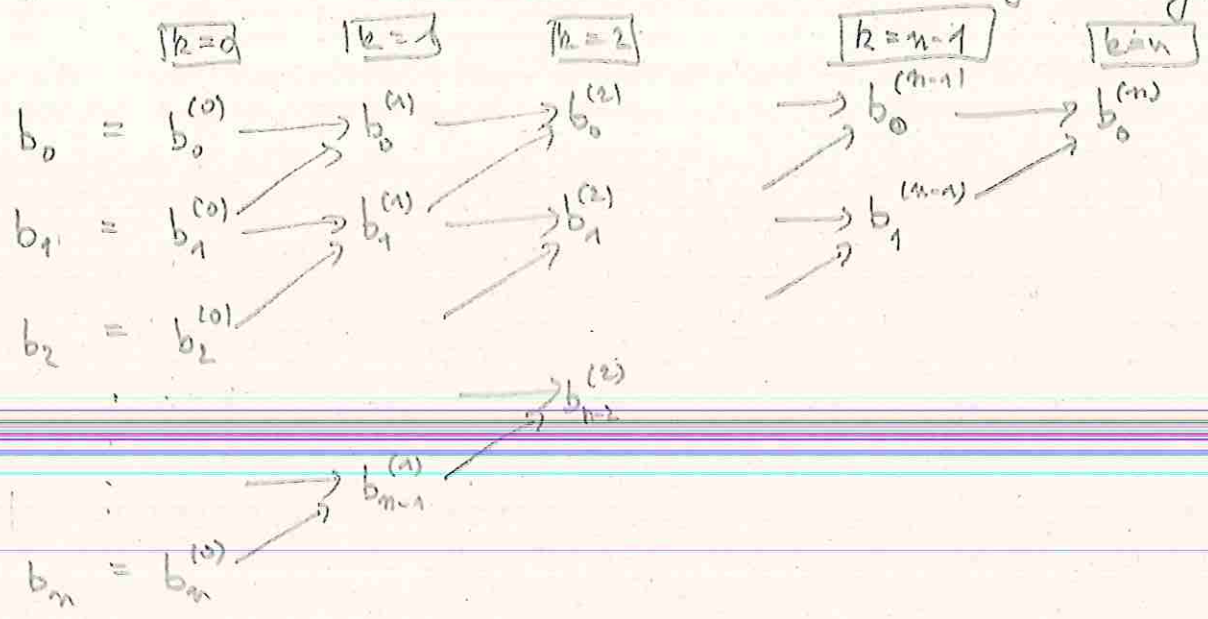 k=0 k=1 k=2 k=n-1 k=n
b₀ = b₀⁽⁰⁾ → b₀⁽¹⁾ → b₀⁽²⁾ → b₀⁽ⁿ⁻¹⁾ → b₀⁽ⁿ⁾
b₁ = b₁⁽⁰⁾ → b₁⁽¹⁾ → b₁⁽²⁾ → b₁⁽ⁿ⁻¹⁾
b₂ = b₂⁽⁰⁾
→ bₙ₋₂⁽²⁾
→ bₙ₋₁⁽¹⁾
bₙ = bₙ⁽⁰⁾